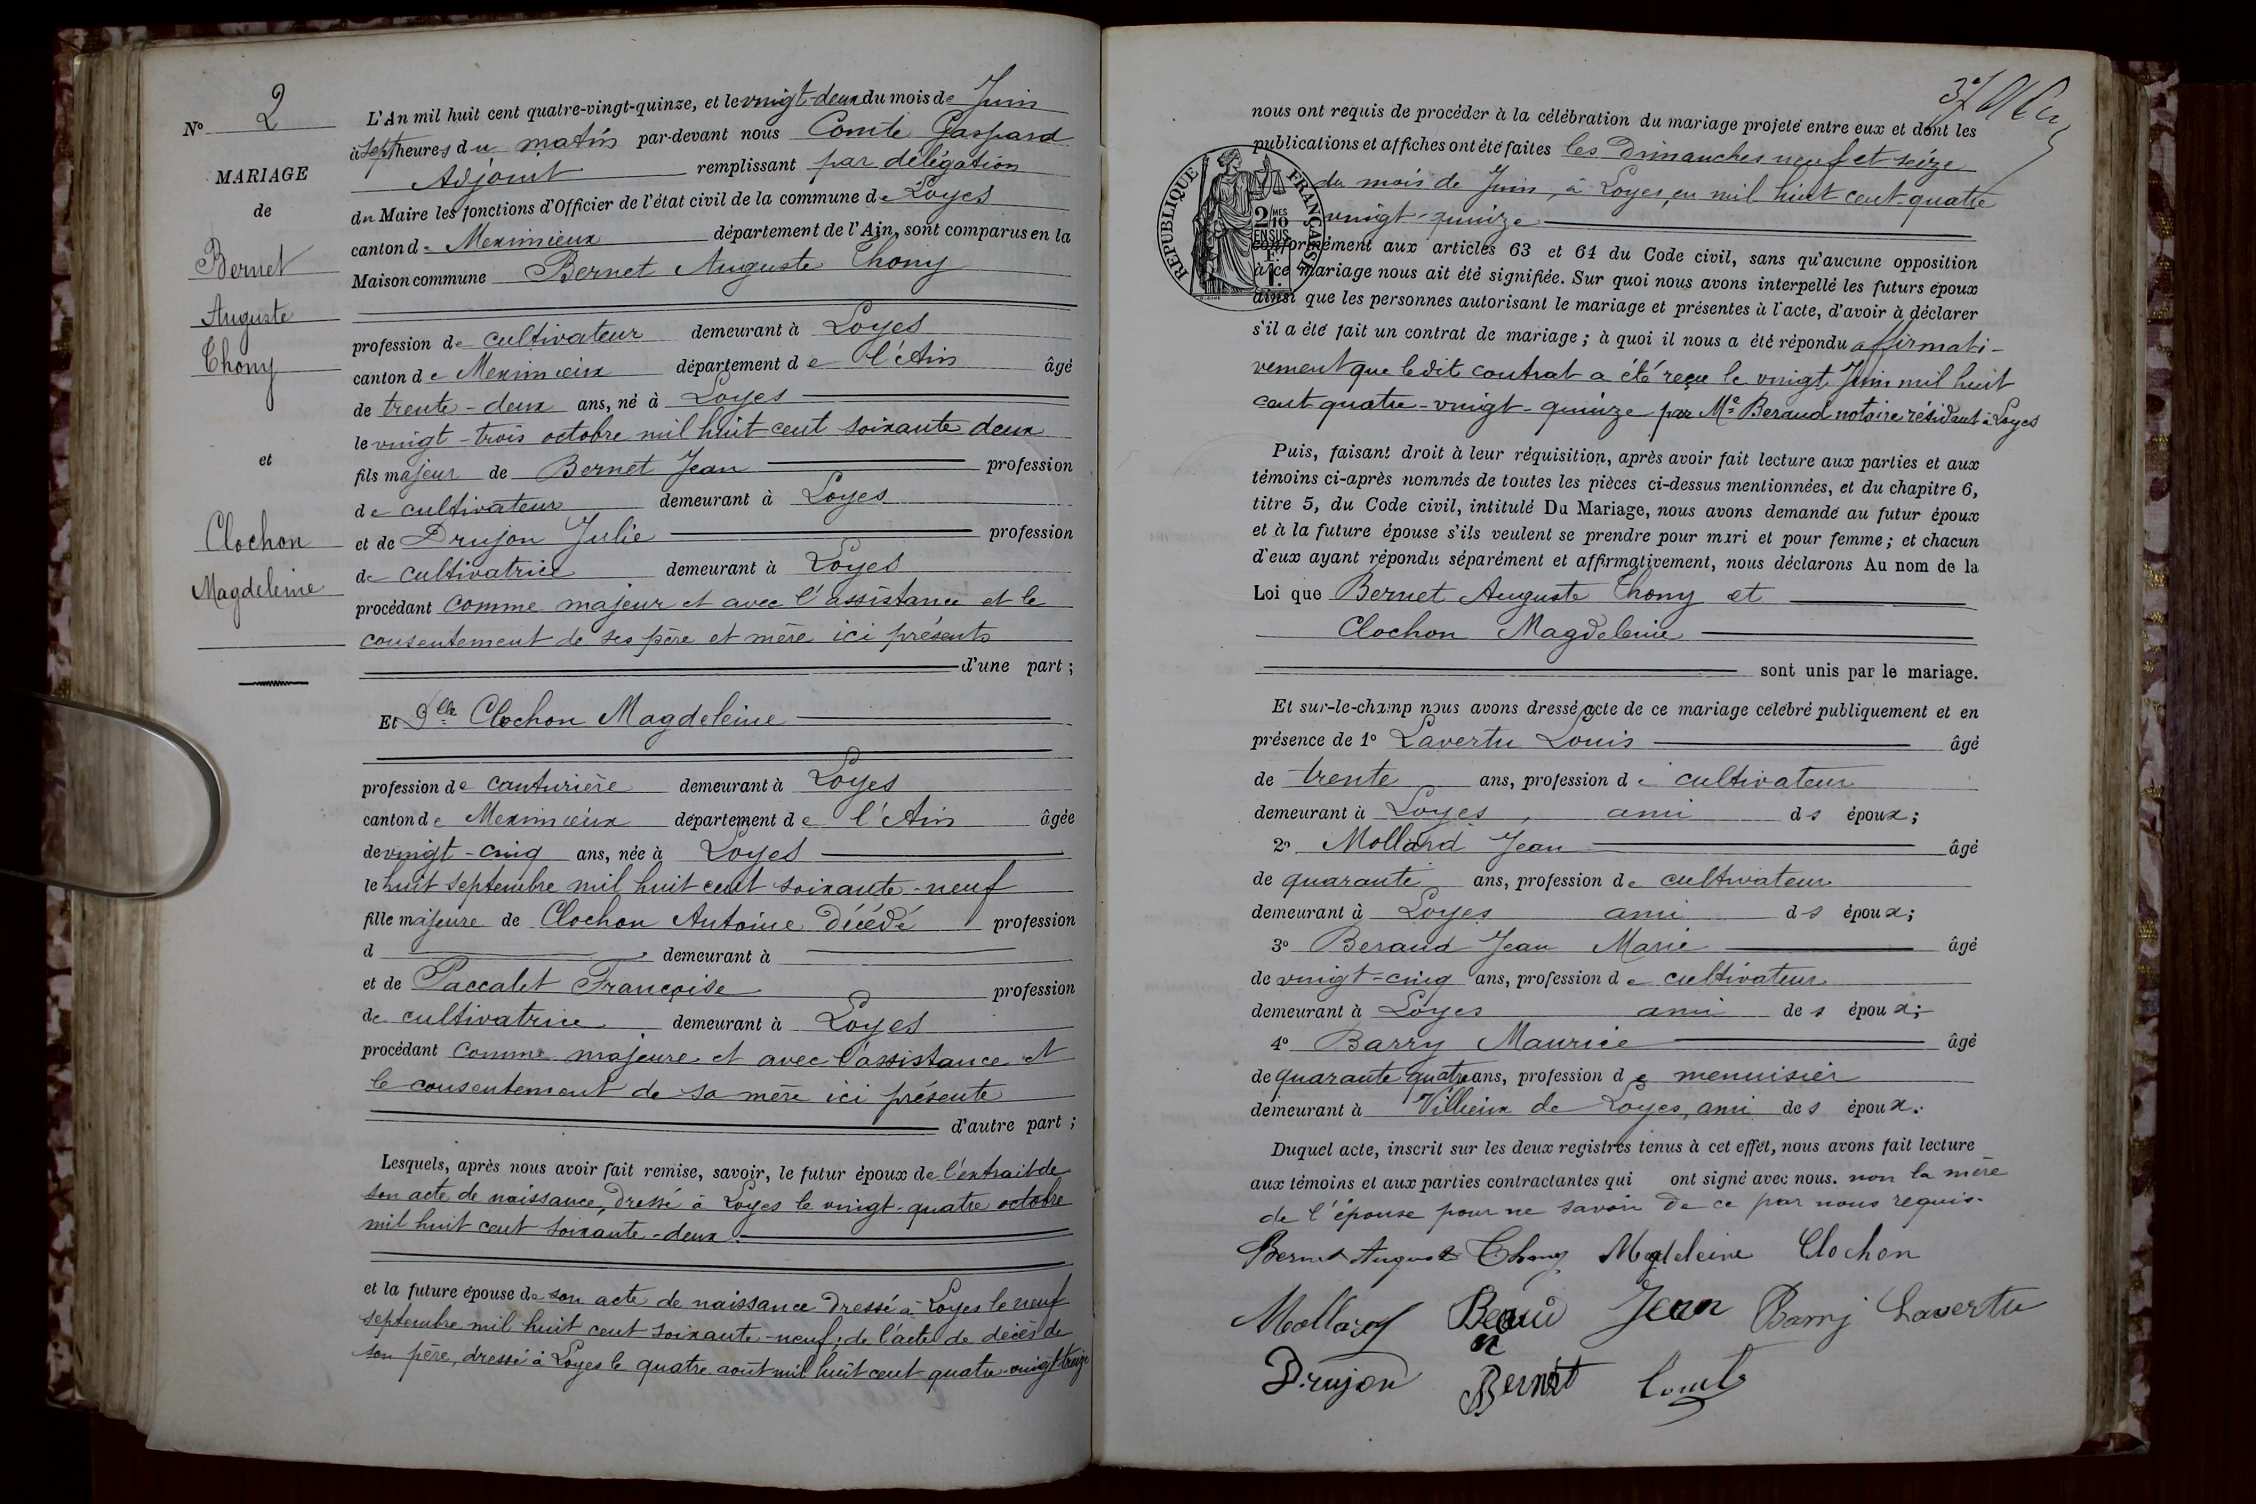 N° 2
MARIAGE
de
Bernet
Auguste
Thony
et
Clochon
Magdeleine
L'An mil huit cent quatre-vingt-quinze, et le vingt-deux du mois de Juin
à sept heures du matin par-devant nous Comte Gaspard
Adjoint remplissant par délégation
du Maire les fonctions d'Officier de l'état civil de la commune de Loyes
canton de Meximieux département de l'Ain, sont comparus en la
Maison commune Bernet Auguste Thony
profession de cultivateur demeurant à Loyes
canton de Meximieux département de l'Ain âgé
de trente-deux ans, né à Loyes
le vingt-trois octobre mil huit cent soixante deux
fils majeur de Bernet Jean profession
de cultivateur demeurant à Loyes
et de Drujon Julie profession
de cultivatrice demeurant à Loyes
procédant comme majeur et avec l'assistance et le
consentement de ses père et mère ici présents
d'une part ;
Et Dlle Clochon Magdeleine
profession de couturière demeurant à Loyes
canton de Meximieux département de l'Ain âgée
de vingt-cinq ans, née à Loyes
le huit septembre mil huit cent soixante-neuf
fille majeure de Clochon Antoine décédé profession
d demeurant à
et de Paccalet Françoise profession
de cultivatrice demeurant à Loyes
procédant comme majeure et avec l'assistance et
le consentement de sa mère ici présente
d'autre part ;
Lesquels, après nous avoir fait remise, savoir, le futur époux de l'extrait de
son acte de naissance, dressé à Loyes le vingt-quatre octobre
mil huit cent soixante-deux.
et la future épouse de son acte de naissance dressé à Loyes le neuf
septembre mil huit cent soixante-neuf; de l'acte de décès de
son père, dressé à Loyes le quatre août mil huit cent quatre-vingt treize
nous ont requis de procéder à la célébration du mariage projeté entre eux et dont les
publications et affiches ont été faites les Dimanches neuf et seize
du mois de Juin, à Loyes, en mil huit cent-quatre
vingt-quinze
RÉPUBLIQUE FRANÇAISE
2 MES
10
EN SUS
1 F.
conformément aux articles 63 et 64 du Code civil, sans qu'aucune opposition
à ce mariage nous ait été signifiée. Sur quoi nous avons interpellé les futurs époux
ainsi que les personnes autorisant le mariage et présentes à l'acte, d'avoir à déclarer
s'il a été fait un contrat de mariage ; à quoi il nous a été répondu affirmati-
vement que ledit contrat a été reçu le vingt Juin mil huit
cent quatre-vingt-quinze par Me Beraud notaire résidant à Loyes
Puis, faisant droit à leur réquisition, après avoir fait lecture aux parties et aux
témoins ci-après nommés de toutes les pièces ci-dessus mentionnées, et du chapitre 6,
titre 5, du Code civil, intitulé Du Mariage, nous avons demandé au futur époux
et à la future épouse s'ils veulent se prendre pour mari et pour femme ; et chacun
d'eux ayant répondu séparément et affirmativement, nous déclarons Au nom de la
Loi que Bernet Auguste Thony et
Clochon Magdeleine
sont unis par le mariage.
Et sur-le-champ nous avons dressé acte de ce mariage célébré publiquement et en
présence de 1° Lavertu Louis âgé
de trente ans, profession de cultivateur
demeurant à Loyes, ami ds époux ;
2° Mollard Jean âgé
de quarante ans, profession de cultivateur
demeurant à Loyes ami ds époux ;
3° Beraud Jean Marie âgé
de vingt-cinq ans, profession de cultivateur
demeurant à Loyes ami des époux ;
4° Barry Maurice âgé
de quarante quatre ans, profession de menuisier
demeurant à Villieux de Loyes, ami des époux.
Duquel acte, inscrit sur les deux registres tenus à cet effet, nous avons fait lecture
aux témoins et aux parties contractantes qui ont signé avec nous. non la mère
de l'épouse pour ne savoir de ce par nous requis.
Bernet Auguste Thony Magdeleine Clochon
Mollard Beaud Jean Barry Lavertu
Drujon Bernet Comte